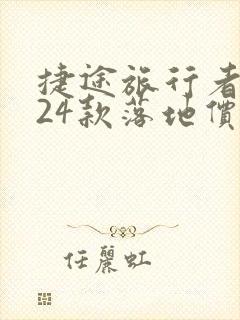 捷途旅行者
24款落地價
任麗虹